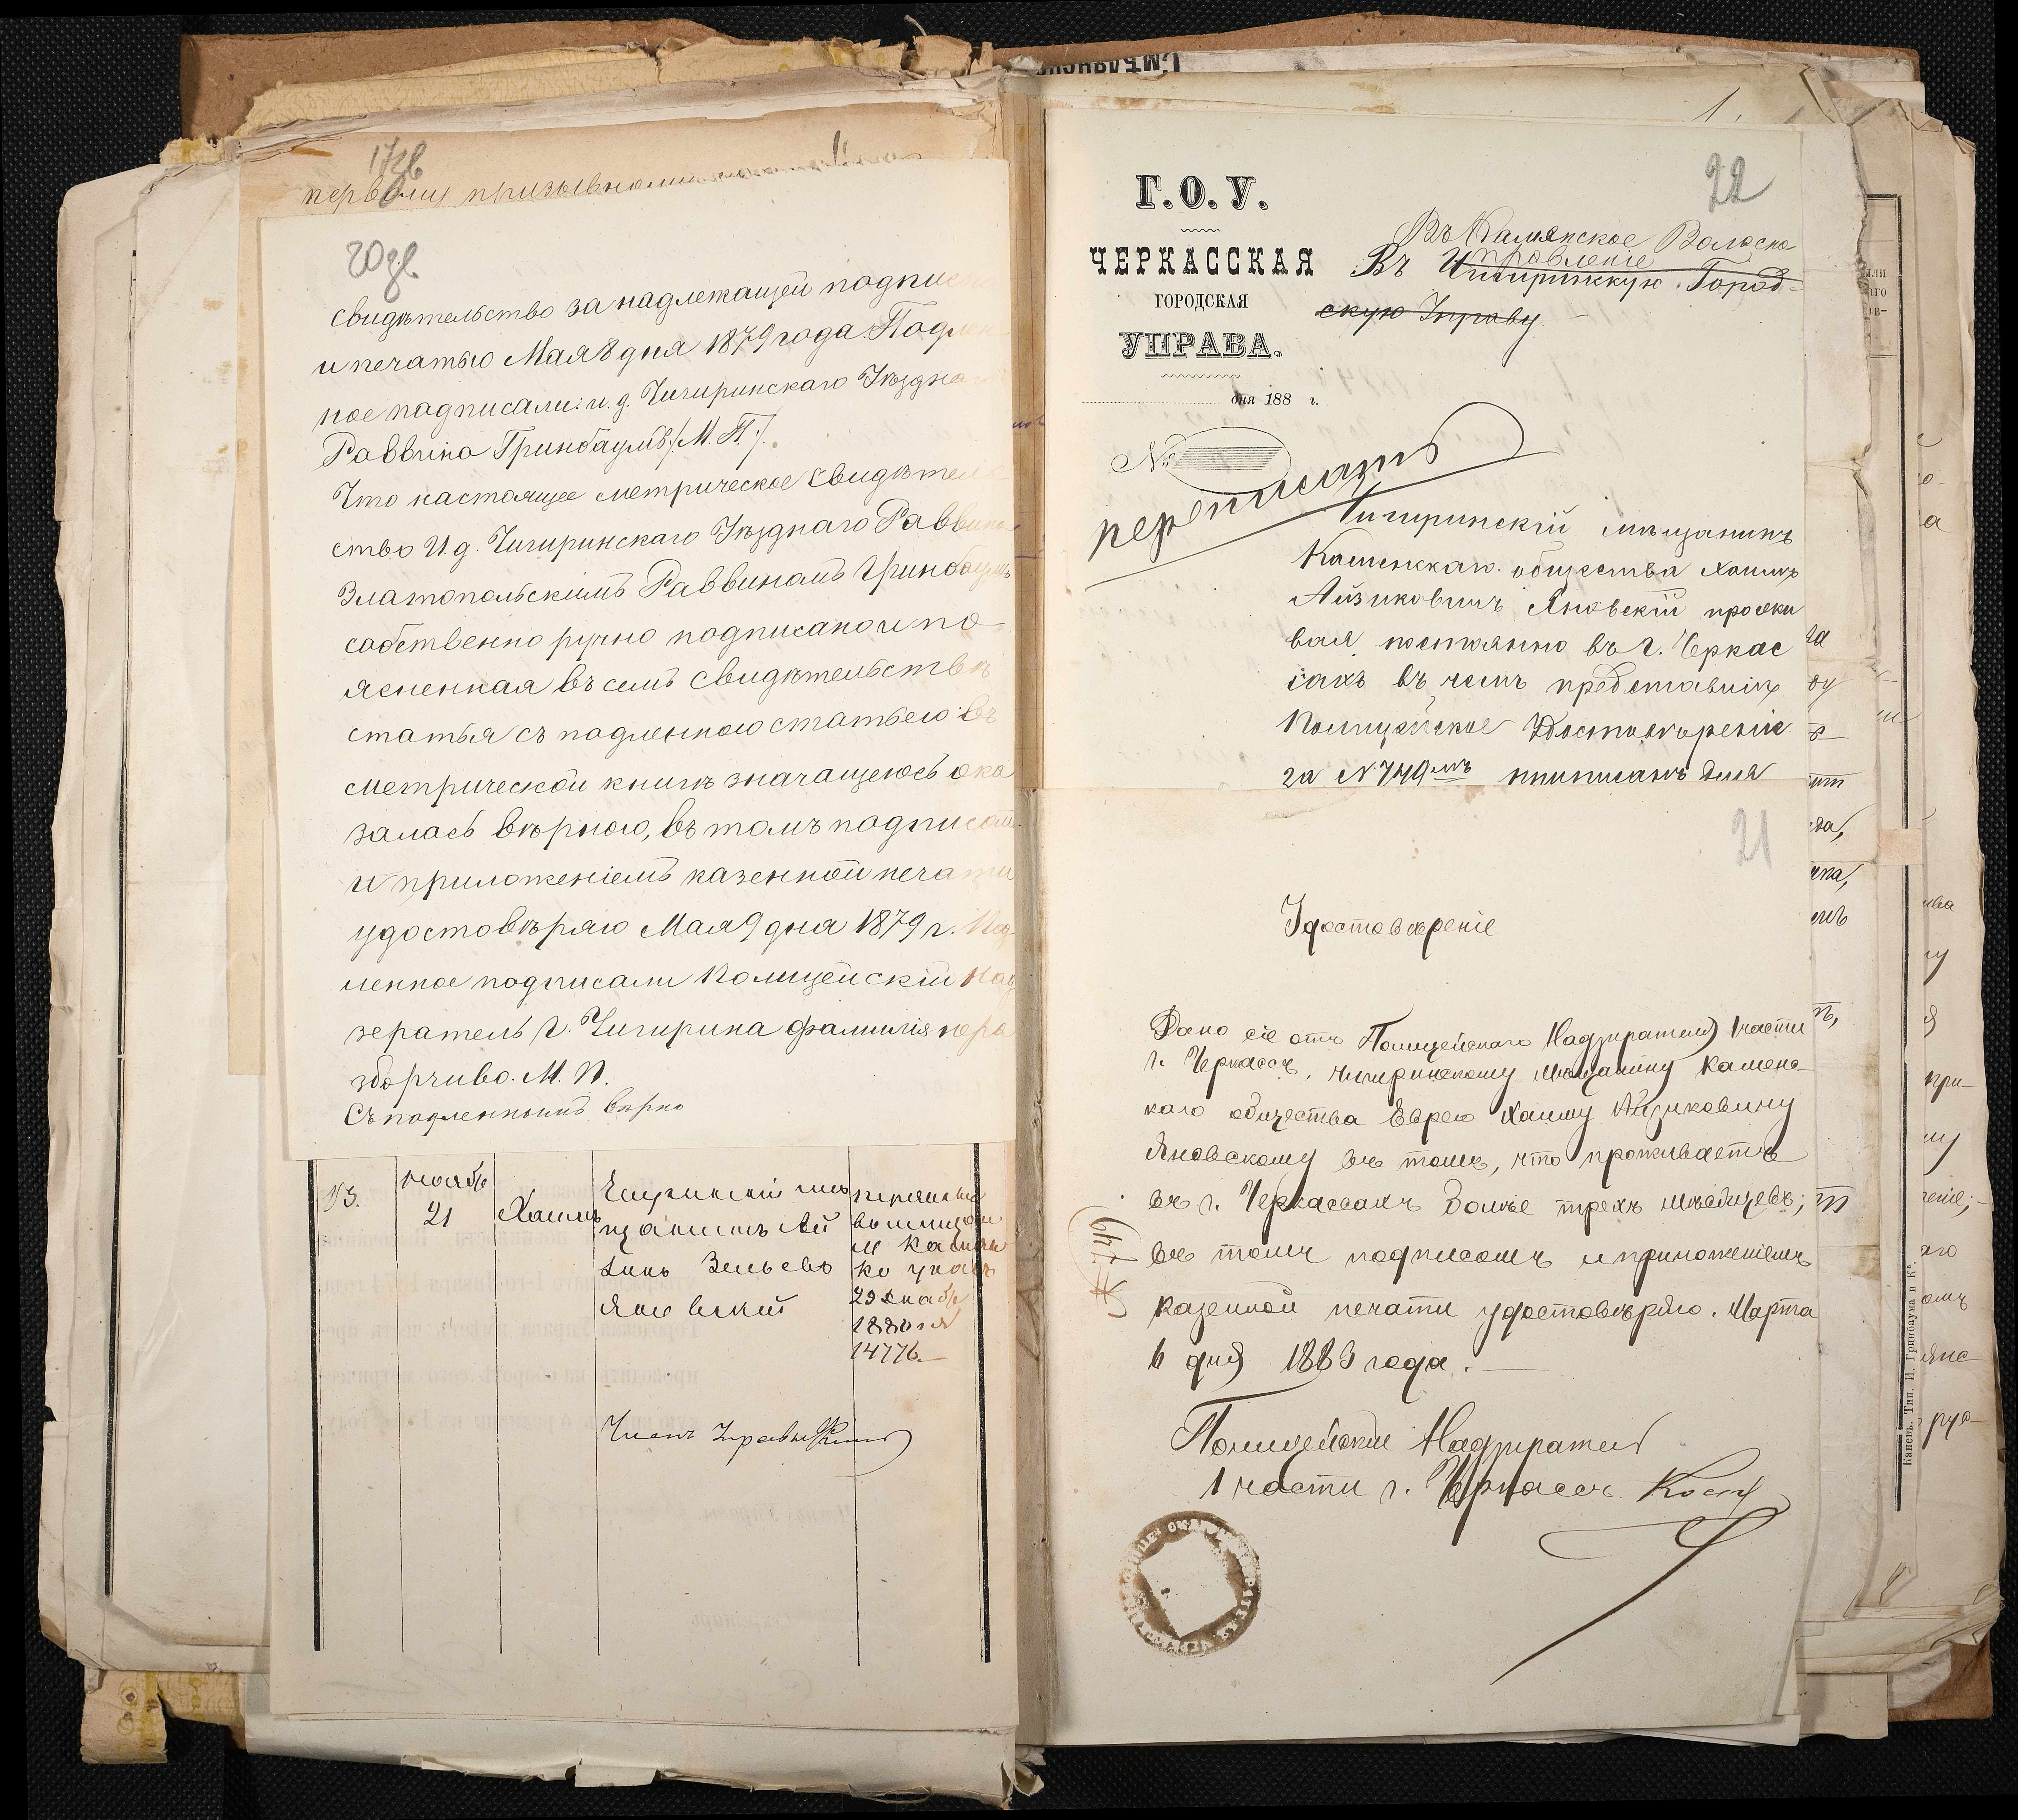 17об
первому призывному
20об.
свидѣтельство за надлежащей подписью
и печатью Мая 8 дня 1879 года. Подлин
ное подписали: и. д. Чигиринскаго Уѣзднаго
Раввина Гринбаумъ /М. П./.
Что настоящее метрическое свидѣтель
ство И. д. Чигиринскаго Уѣзднаго Раввина
Златопольскимъ Раввиномъ Гринбаумъ
собственно ручно подписано и по-
ясненная въ семъ свидѣтельствѣ
статья съ подленною статьею въ
метрической книгѣ значащеюсь ока
залась вѣрною, въ томъ подписом
и приложеніемъ казенной печати
удостовѣряю Мая 9 дня 1879 г. Под
ленное подписали Полицейскій Над
зератель г. Чигирина фамилія нера
зборчиво. М. П.
Съ подленнымъ вѣрно
13.
ноябр
21
Хаимъ
Чигиринскій мѣ
щанинъ Ай
зикъ Зельевъ
Яновскій
въ мещан
м Камен
ку указъ
29 Декабр
1880 г. №
14776.—
Членъ Управы
Смѣлянск
1.
22
Г. О. У.
ЧЕРКАССКАЯ
ГОРОДСКАЯ
УПРАВА.
дня 188 г.
№
Въ Камянское Волосно
Правленіе
Въ Чигиринскую Город-
скую Управу.
переписать
Чигиринскій мѣщанинъ
Каменскаго общества Хаимъ
Айзиковичъ Яновскій прожи
вая постоянно въ г. Черкас
сахъ въ чемъ представилъ
Полицейское Удостовѣреніе
за № 749мъ приписанъ для
21
Удостовѣреніе
Дано сіе отъ Полицейскаго Надзирателя 1 части
г. Черкассъ, Чигиринскому мѣщанину Каменс-
каго общества Еврею Хаиму Айзиковичу
Яновскому въ томъ, что проживаетъ
въ г. Черкассахъ болѣе трехъ мѣсяцевъ;
въ томъ подписомъ и приложеніемъ
казенной печати удостовѣряю. Марта
6 дня 1883 года.—
№ 749
Полицейскій Надзиратель
1 части г. Черкассъ
Каневъ. Тип. И. Гринбаума и Кº.